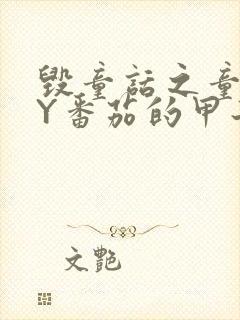 毁童话之童
Y番茄的甲
文艷